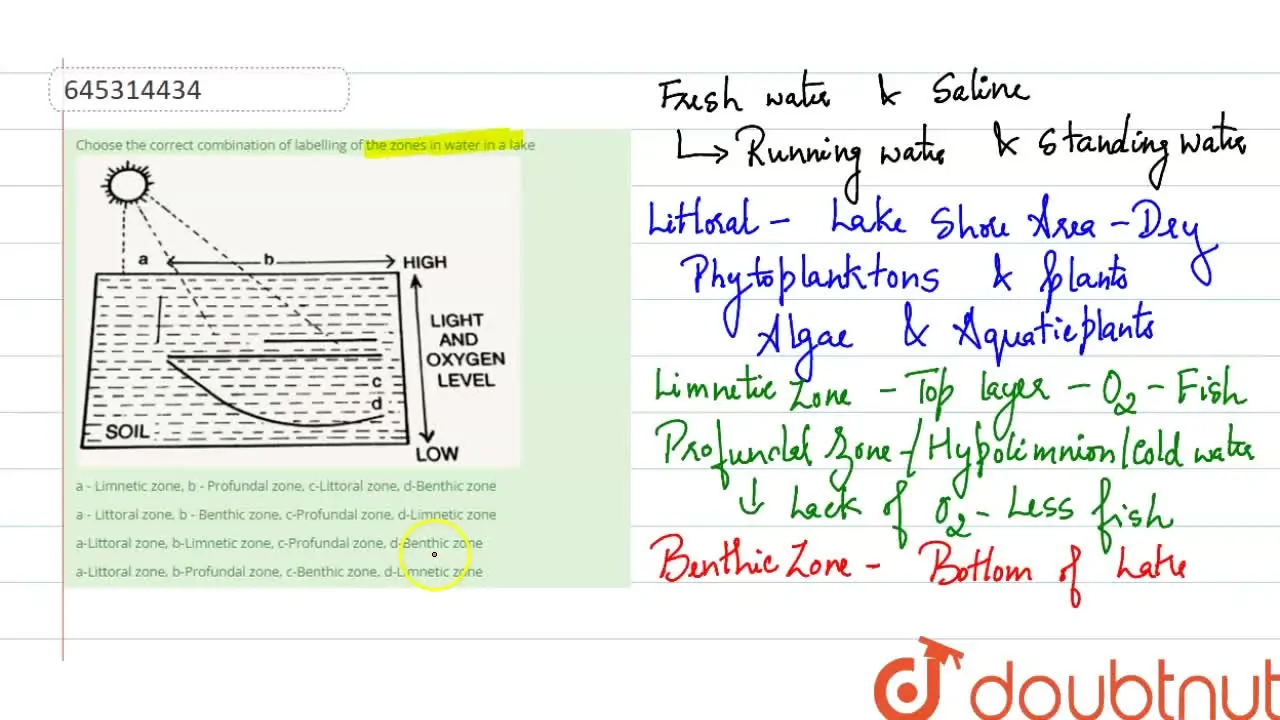 645314434
Choose the correct combination of labelling of the zones in water in a lake
a
b
HIGH
LIGHT
AND
OXYGEN
LEVEL
c
d
SOIL
LOW
a - Limnetic zone, b - Profundal zone, c-Littoral zone, d-Benthic zone
a - Littoral zone, b - Benthic zone, c-Profundal zone, d-Limnetic zone
a-Littoral zone, b-Limnetic zone, c-Profundal zone, d-Benthic zone
a-Littoral zone, b-Profundal zone, c-Benthic zone, d-Limnetic zone
Fresh water & Saline
Running water & Standing water
Littoral - Lake Shore Area - Dry
Phytoplanktons & plants
Algae & Aquatic plants
Limnetic Zone - Top layer - O2 - Fish
Profundal Zone - / Hypolimnion / Cold water
↓ Lack of O2 - Less fish
Benthic Zone - Bottom of Lake
doubtnut